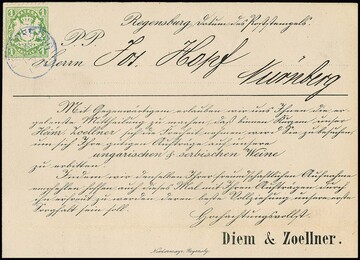 Regensburg, Datum des Poststempels.
P. P.
Herrn Jos. Hopf
Nürnberg
Mit Gegenwärtigem erlauben wir uns Ihnen die er-
gebenste Mittheilung zu machen, daß binnen Kurzem unser
Heinr. Zoellner sich die Freiheit nehmen wird Sie zu besuchen
um sich Ihre gütigen Aufträge auf unsere
ungarischen & serbischen Weine
zu erbitten.
Indem wir denselben Ihrer freundschaftlichen Aufnahme
empfehlen hoffen auch dieses Mal mit Ihren Aufträgen durch
ihn erfreut zu werden deren beste Vollziehung unser erste
Sorgfalt sein soll.
Hochachtungsvollst
Diem & Zoellner.